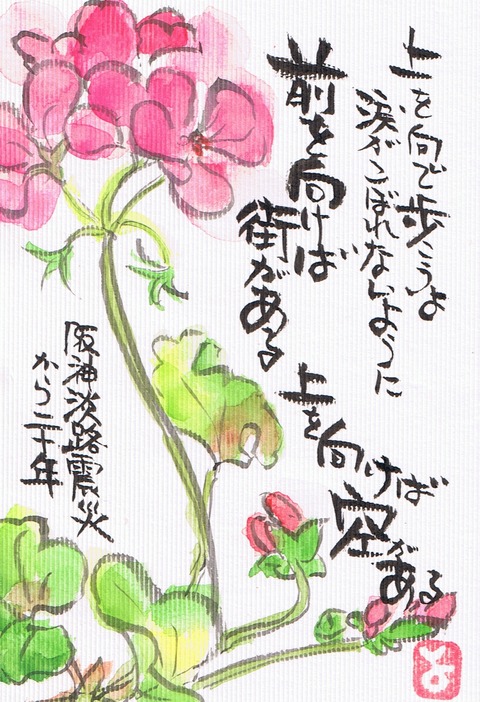 上を向て歩こうよ
涙がこぼれないように
前を向けば
街がある
上を向けば
空がある
阪神淡路震災
から二十年
よ